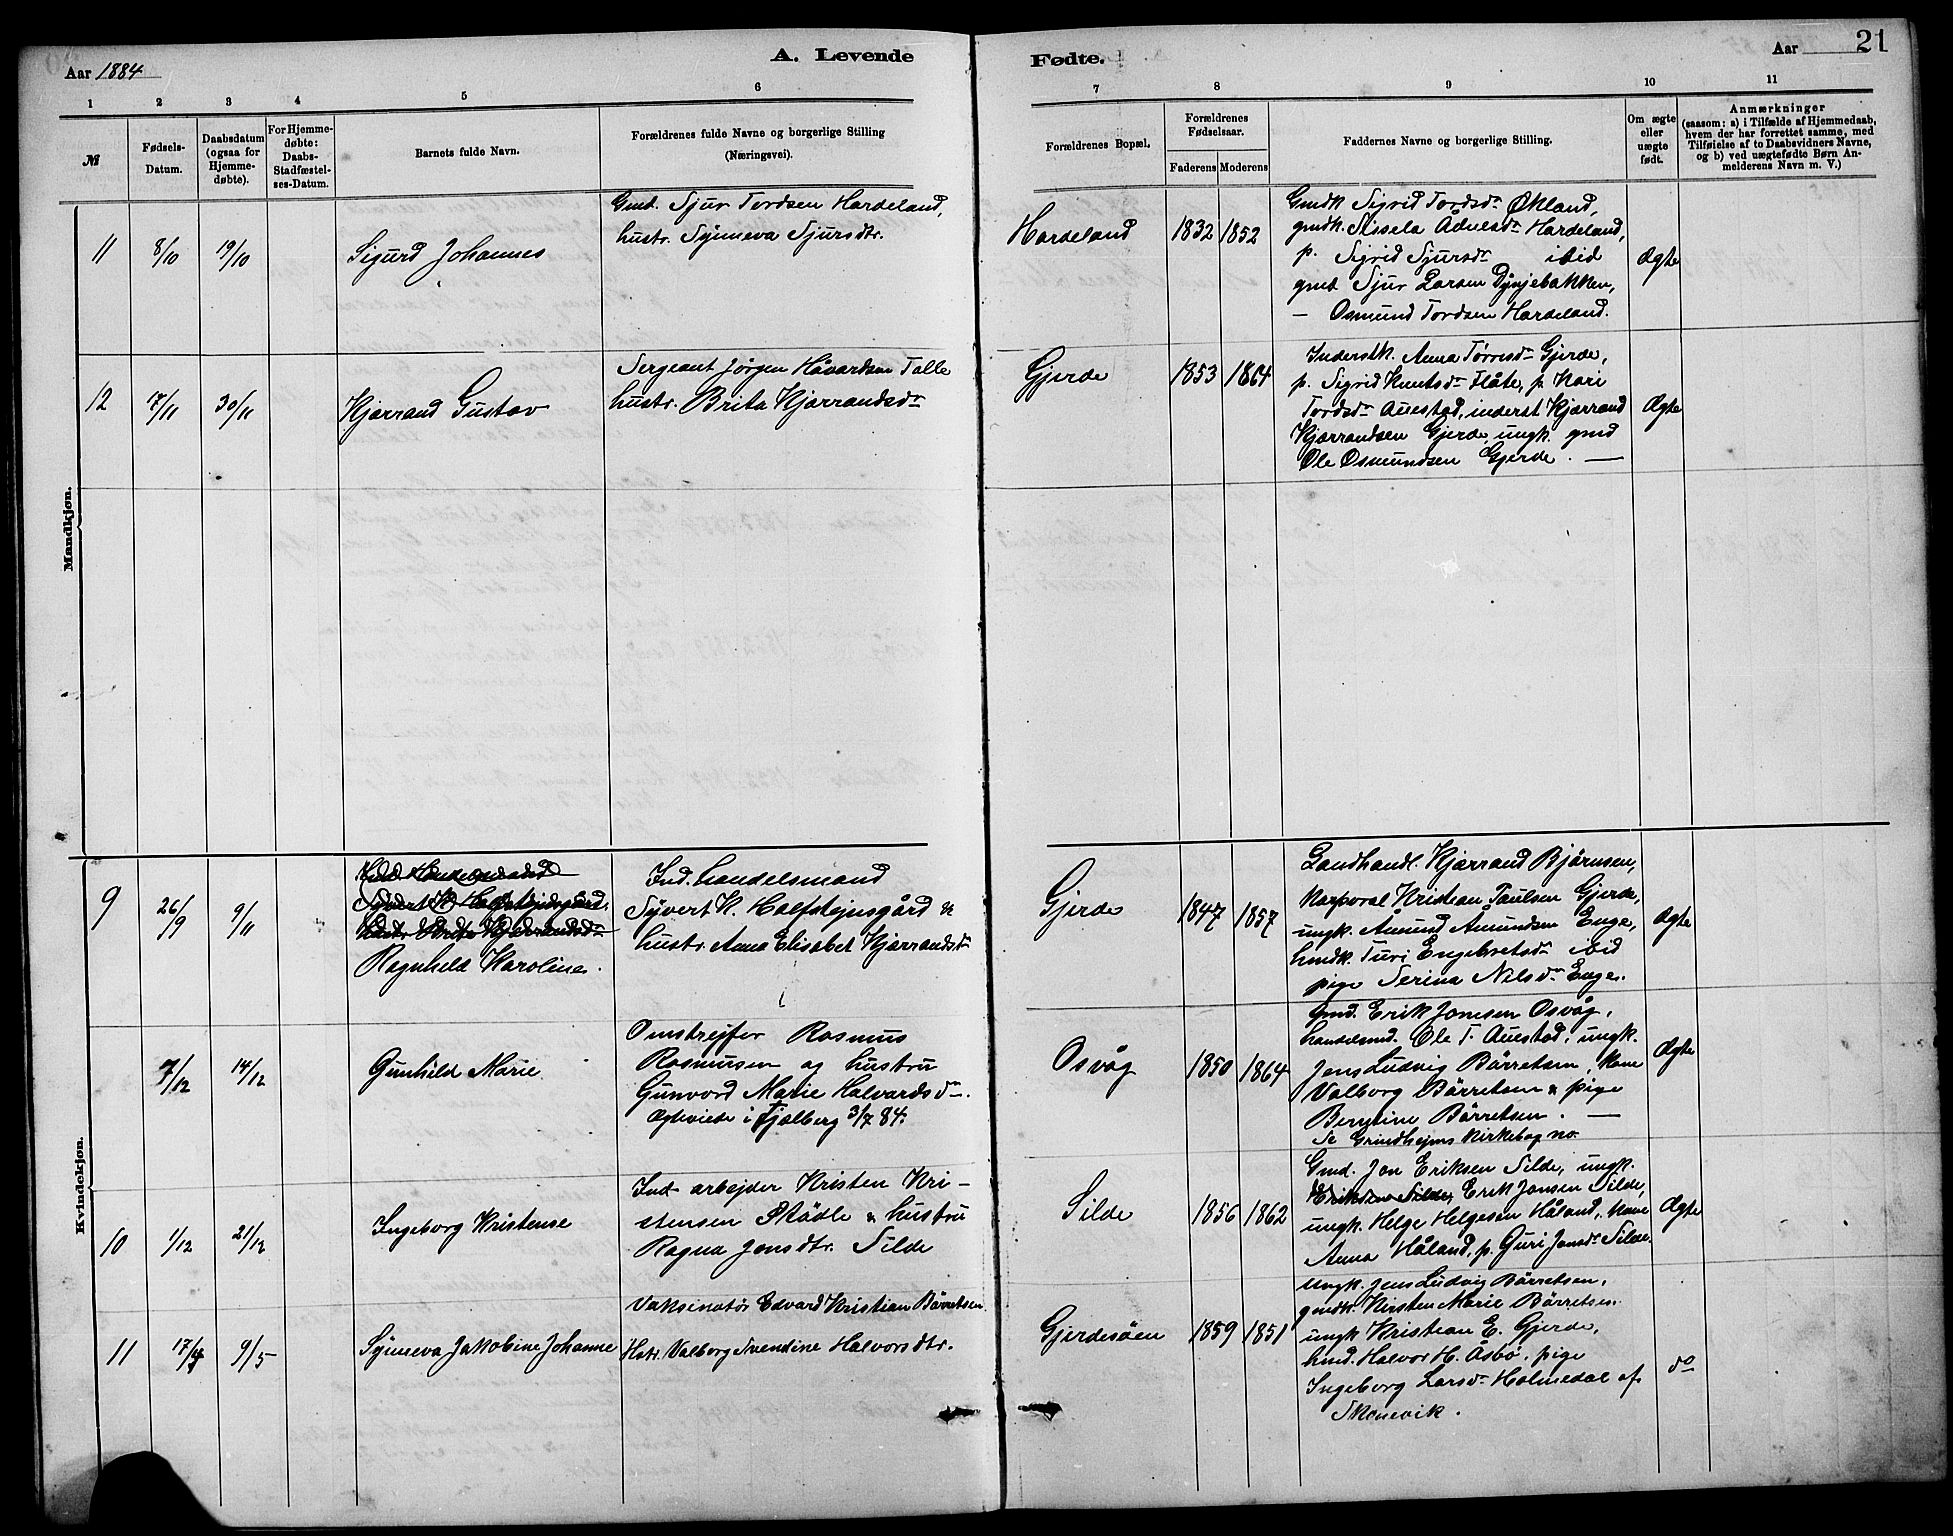 Aar 1884
A. Levende
Fødte.
Aar
21
1
2
3
4
5
6
7
8
9
10
11
№
Fødsels-
Datum.
Daabsdatum
(ogsaa for
Hjemme-
døbte).
For Hjemme-
døbte:
Daabs-
Stadfæstel-
ses-Datum.
Barnets fulde Navn.
Forældrenes fulde Navne og borgerlige Stilling
(Næringsvei).
Forældrenes Bopæl.
Forældrenes
Fødselsaar.
Faderens
Moderens
Faddernes Navne og borgerlige Stilling.
Om ægte
eller
uægte
født.
Anmærkninger
(saasom: a) i Tilfælde af Hjemmedaab,
hvem der har forrettet samme, med
Tilføielse af to Daabsvidners Navne,
og b) ved uægtefødte Børn An-
melderens Navn m. V.)
Mandkjøn.
11
8/10
19/10
Sigurd Johannes
Gmd. Sjur Tordsen Hardeland,
hustr. Synneva Sjursdtr.
Hardeland
1832
1852
Gmdk Sigrid Tordsdr Økland,
gmdk. Sissela Ådnesdr Hardeland,
p. Sigrid Sjursdr ibid
gmd Sjur Larsen Dynjebakken,
— Osmund Tordsen Hardeland.
Ægte
12
7/11
30/11
Kjærrand Gustav
Sergeant Jörgen Håvardsen Falle
hustr. Brita Kjærrandsdr
Gjerde
1853
1864
Inderstk. Anna Törresdr Gjerde,
p. Sigrid Knutsdr Flåte, p. Kari
Tordsdr Auestad, inderst Kjærrand
Kjærrandsen Gjerde, ungk. gmd
Ole Osmundsen Gjerde. —
Ægte
Kvindekjøn.
9
26/9
9/11
Ragnhild Karoline.
Ind. handelsmand
Syvert K. Halfstejnsgård &
hustr. Anna Elisabet Kjærrandsdr
Gjerde
1847
1857
Landhandl. Kjærrand Björnsen,
Korporal Kristian Paulsen Gjerde,
ungk. Åmund Åmundsen Enge,
hmdk. Turi Engebretsdr ibid
pige Serina Nilsdr Enge.
Ægte
7/12
14/12
Gunhild Marie
Omstrejfer Rasmus
Rasmusen og hustru
Gunvord Marie Halvardsdr.
Ægteviede i Fjælberg 3/7 84.
Osvåg
1850
1864
Gmd. Erik Jonsen Osvåg,
handelsmd. Ole T. Auestad, ungk.
Jens Ludvig Börretsen, Kone
Valborg Börretsen & pige
Bergtine Börretsen. —
Se Grindhejms Kirkebog no.
Ægte
10
1/12
21/12
Ingeborg Kristense
Ind arbejder Kristen Kri-
stensen Städle & hustru
Ragna Jonsdtr. Silde
Silde
1856
1862
Gmd. Jon Eriksen Silde, ungk.
Eriksen Silde, Erik Jonsen Silde,
ungk. Helge Helgesen Håland, Kone
Anna Håland, p. Guri Jonsdr Silde.
Ægte
11
17/4
9/5
Synneva Jakobine Johanne
Vaksinatör Edvard Kristian Börretsen
Hstr. Valborg Svendine Halvorsdtr.
Gjerdesöen
1859
1851
Ungk. Jens Ludvig Börretsen,
gmdk. Kirsten Marie Börretsen.
ungk Kristian E. Gjerde,
hmd. Halvor H. Åsbö, pige
Ingeborg Larsdr Holmedal af
Skonevik.
do